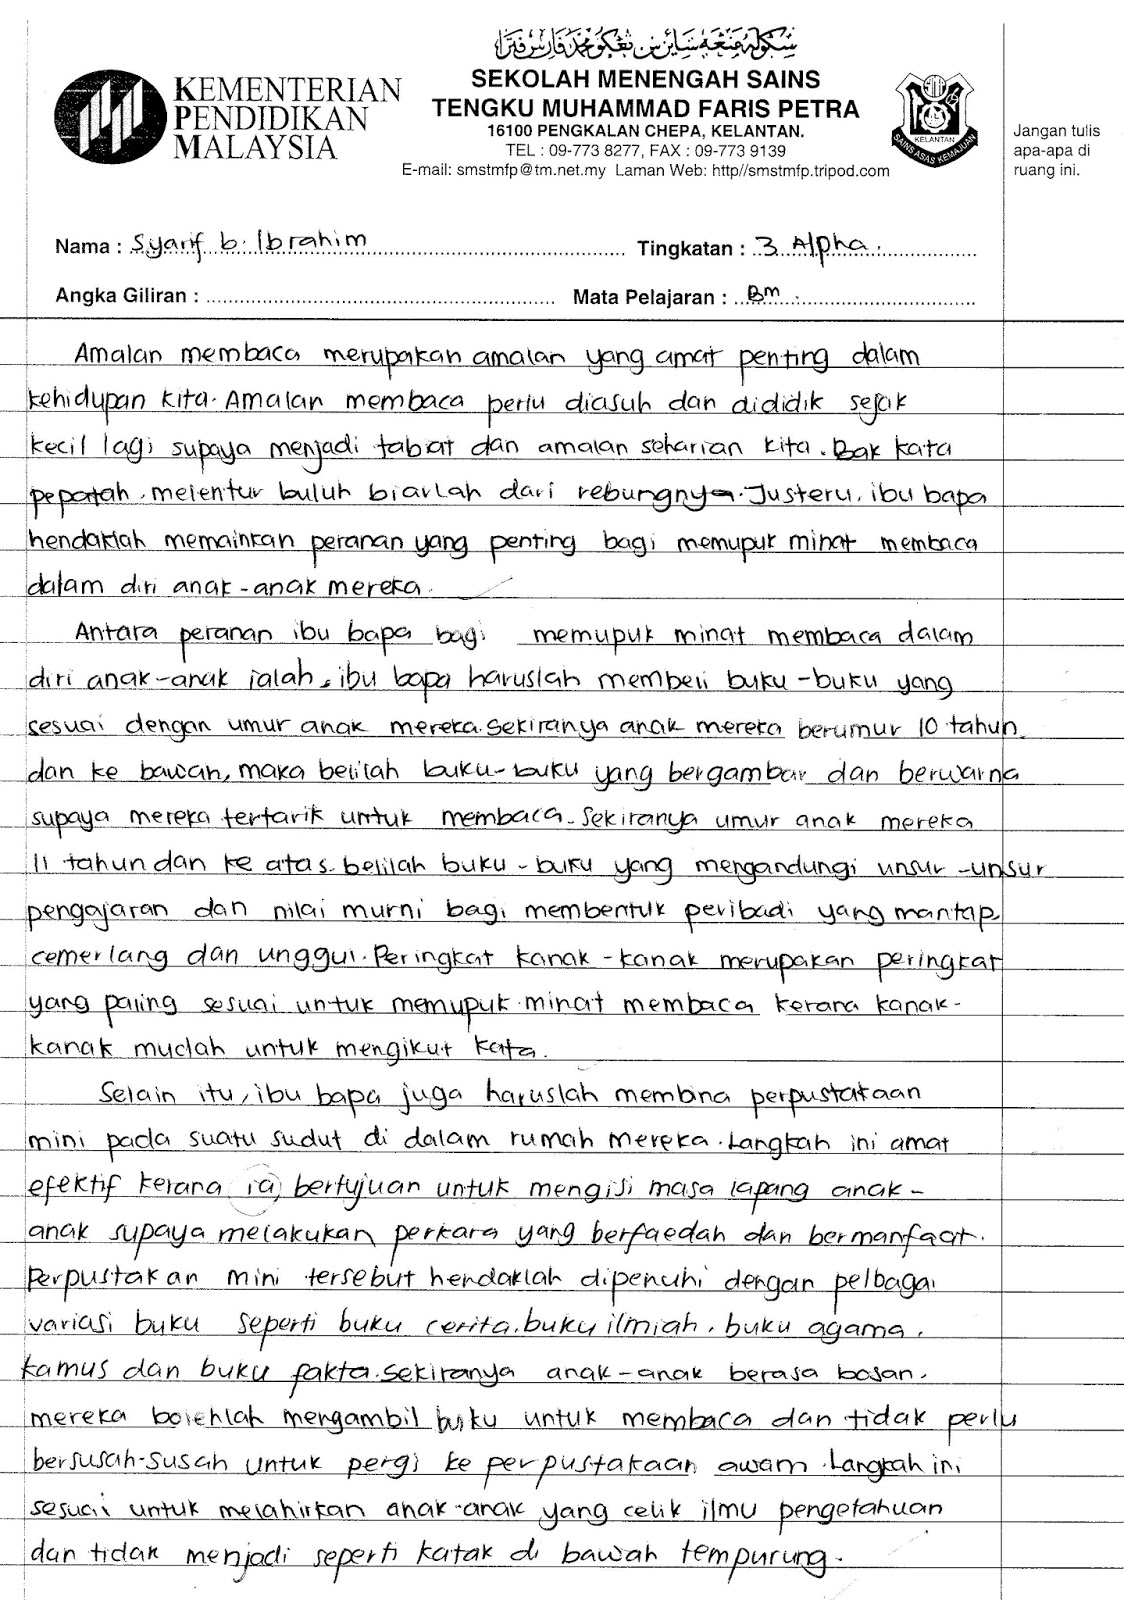 KEMENTERIAN
PENDIDIKAN
MALAYSIA
SEKOLAH MENENGAH SAINS
TENGKU MUHAMMAD FARIS PETRA
16100 PENGKALAN CHEPA, KELANTAN.
TEL : 09-773 8277, FAX : 09-773 9139
E-mail: smstmfp@tm.net.my Laman Web: http//smstmfp.tripod.com
KELANTAN
SAINS ASAS KEMAJUAN
Jangan tulis
apa-apa di
ruang ini.
Nama : Syarif b. Ibrahim Tingkatan : 3 Alpha.
Angka Giliran : Mata Pelajaran : Bm.
Amalan membaca merupakan amalan yang amat penting dalam
kehidupan kita. Amalan membaca perlu diasuh dan dididik sejak
kecil lagi supaya menjadi tabiat dan amalan seharian kita. Bak kata
pepatah, melentur buluh biarlah dari rebungnya. Justeru, ibu bapa
hendaklah memainkan peranan yang penting bagi memupuk minat membaca
dalam diri anak-anak mereka.
Antara peranan ibu bapa bagi memupuk minat membaca dalam
diri anak-anak ialah, ibu bapa haruslah membeli buku-buku yang
sesuai dengan umur anak mereka. Sekiranya anak mereka berumur 10 tahun
dan ke bawah, maka belilah buku-buku yang bergambar dan berwarna
supaya mereka tertarik untuk membaca. Sekiranya umur anak mereka
11 tahun dan ke atas, belilah buku-buku yang mengandungi unsur-unsur
pengajaran dan nilai murni bagi membentuk peribadi yang mantap,
cemerlang dan unggul. Peringkat kanak-kanak merupakan peringkat
yang paling sesuai untuk memupuk minat membaca kerana kanak-
kanak mudah untuk mengikut kata.
Selain itu, ibu bapa juga haruslah membina perpustakaan
mini pada suatu sudut di dalam rumah mereka. Langkah ini amat
efektif kerana ia bertujuan untuk mengisi masa lapang anak-
anak supaya melakukan perkara yang berfaedah dan bermanfaat.
Perpustakan mini tersebut hendaklah dipenuhi dengan pelbagai
variasi buku seperti buku cerita, buku ilmiah, buku agama,
kamus dan buku fakta. Sekiranya anak-anak berasa bosan,
mereka bolehlah mengambil buku untuk membaca dan tidak perlu
bersusah-susah untuk pergi ke perpustakaan awam. Langkah ini
sesuai untuk melahirkan anak-anak yang celik ilmu pengetahuan
dan tidak menjadi seperti katak di bawah tempurung.